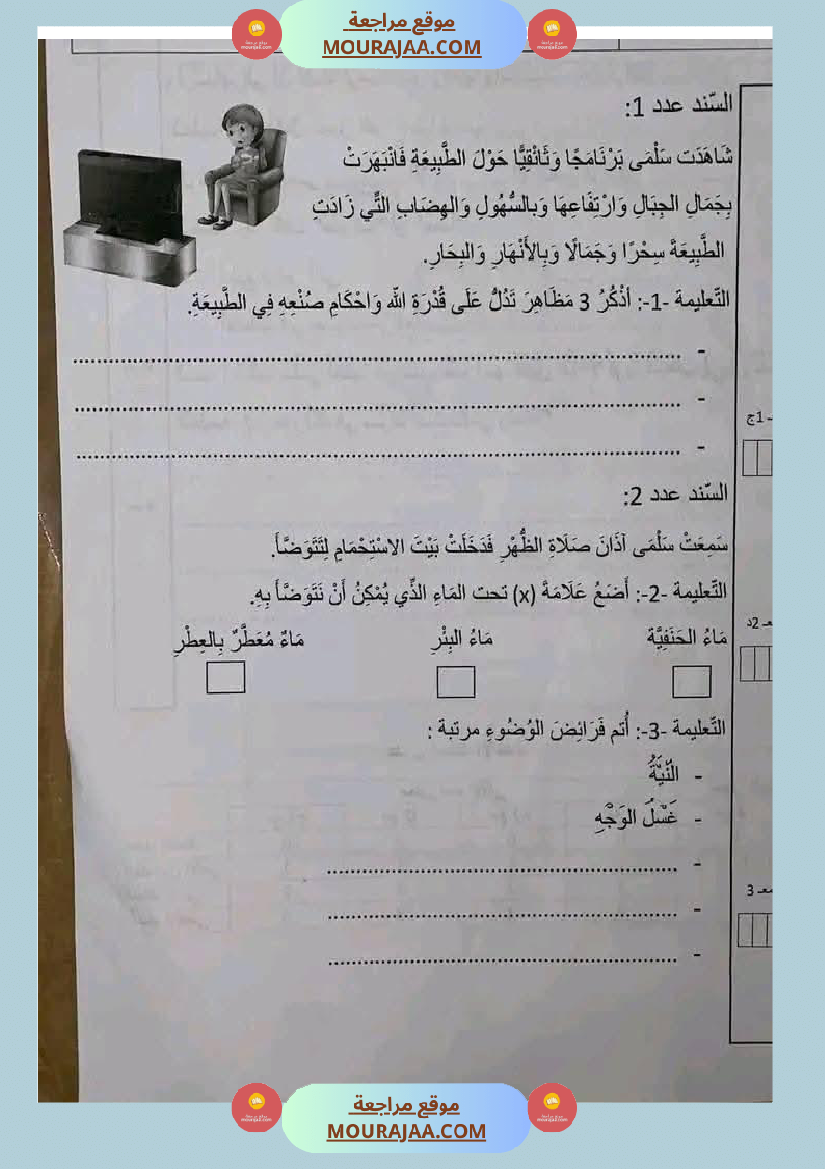 موقع مراجعة
MOURAJAA.COM
السّند عدد 1:
شَاهَدَت سَلْمَى بَرْنَامَجًا وَثَائِقِيًّا حَوْلَ الطَّبِيعَةِ فَانْبَهَرَتْ
بِجَمَالِ الجِبَالِ وَارْتِفَاعِهَا وَبالسُّهُولِ وَالهِضَابِ التِّي زَادَتِ
الطَّبِيعَةَ سِحْرًا وَجَمَالًا وَبِالأَنْهَارِ وَالبِحَارِ.
التّعليمة -1-: أَذْكُرُ 3 مَظَاهِرَ تَدُلُّ عَلَى قُدْرَةِ اللّه وَاحْكَامِ صُنْعِهِ فِي الطَّبِيعَةِ.
- ........................................
- ........................................
- ........................................
ـ 1ج
السّند عدد 2:
سَمِعَتْ سَلْمَى آذَانَ صَلَاةِ الظُّهْرِ فَدَخَلَتْ بَيْتَ الاسْتِحْمَامِ لِتَتَوَضَّأَ.
التّعليمة -2-: أَضَعُ عَلَامَةَ (x) تحت المَاءِ الذِّي يُمْكِنُ أَنْ نَتَوَضَّأَ بِهِ.
مَاءُ الحَنَفِيَّة مَاءُ البِئْرِ مَاءٌ مُعَطَّرٌ بِالعِطْرِ
ـعـ 2د
التّعليمة -3-: أُتم فَرَائِضَ الوُضُوءِ مرتبة :
- النِّيَّةُ
- غَسْلَ الوَجْهِ
- ........................................
- ........................................
- ........................................
معـ 3
موقع مراجعة
MOURAJAA.COM